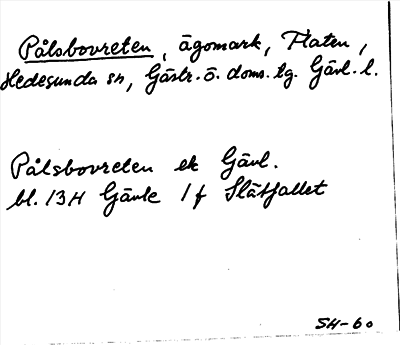 Pålsbovreten, ägomark, Flaten,
Hedesunda sn, Gästr. ö. doms. tg. Gävl. l.
Pålsbovreten ek Gävl.
bl. 13H Gävle 1f Slätfallet
SH-60